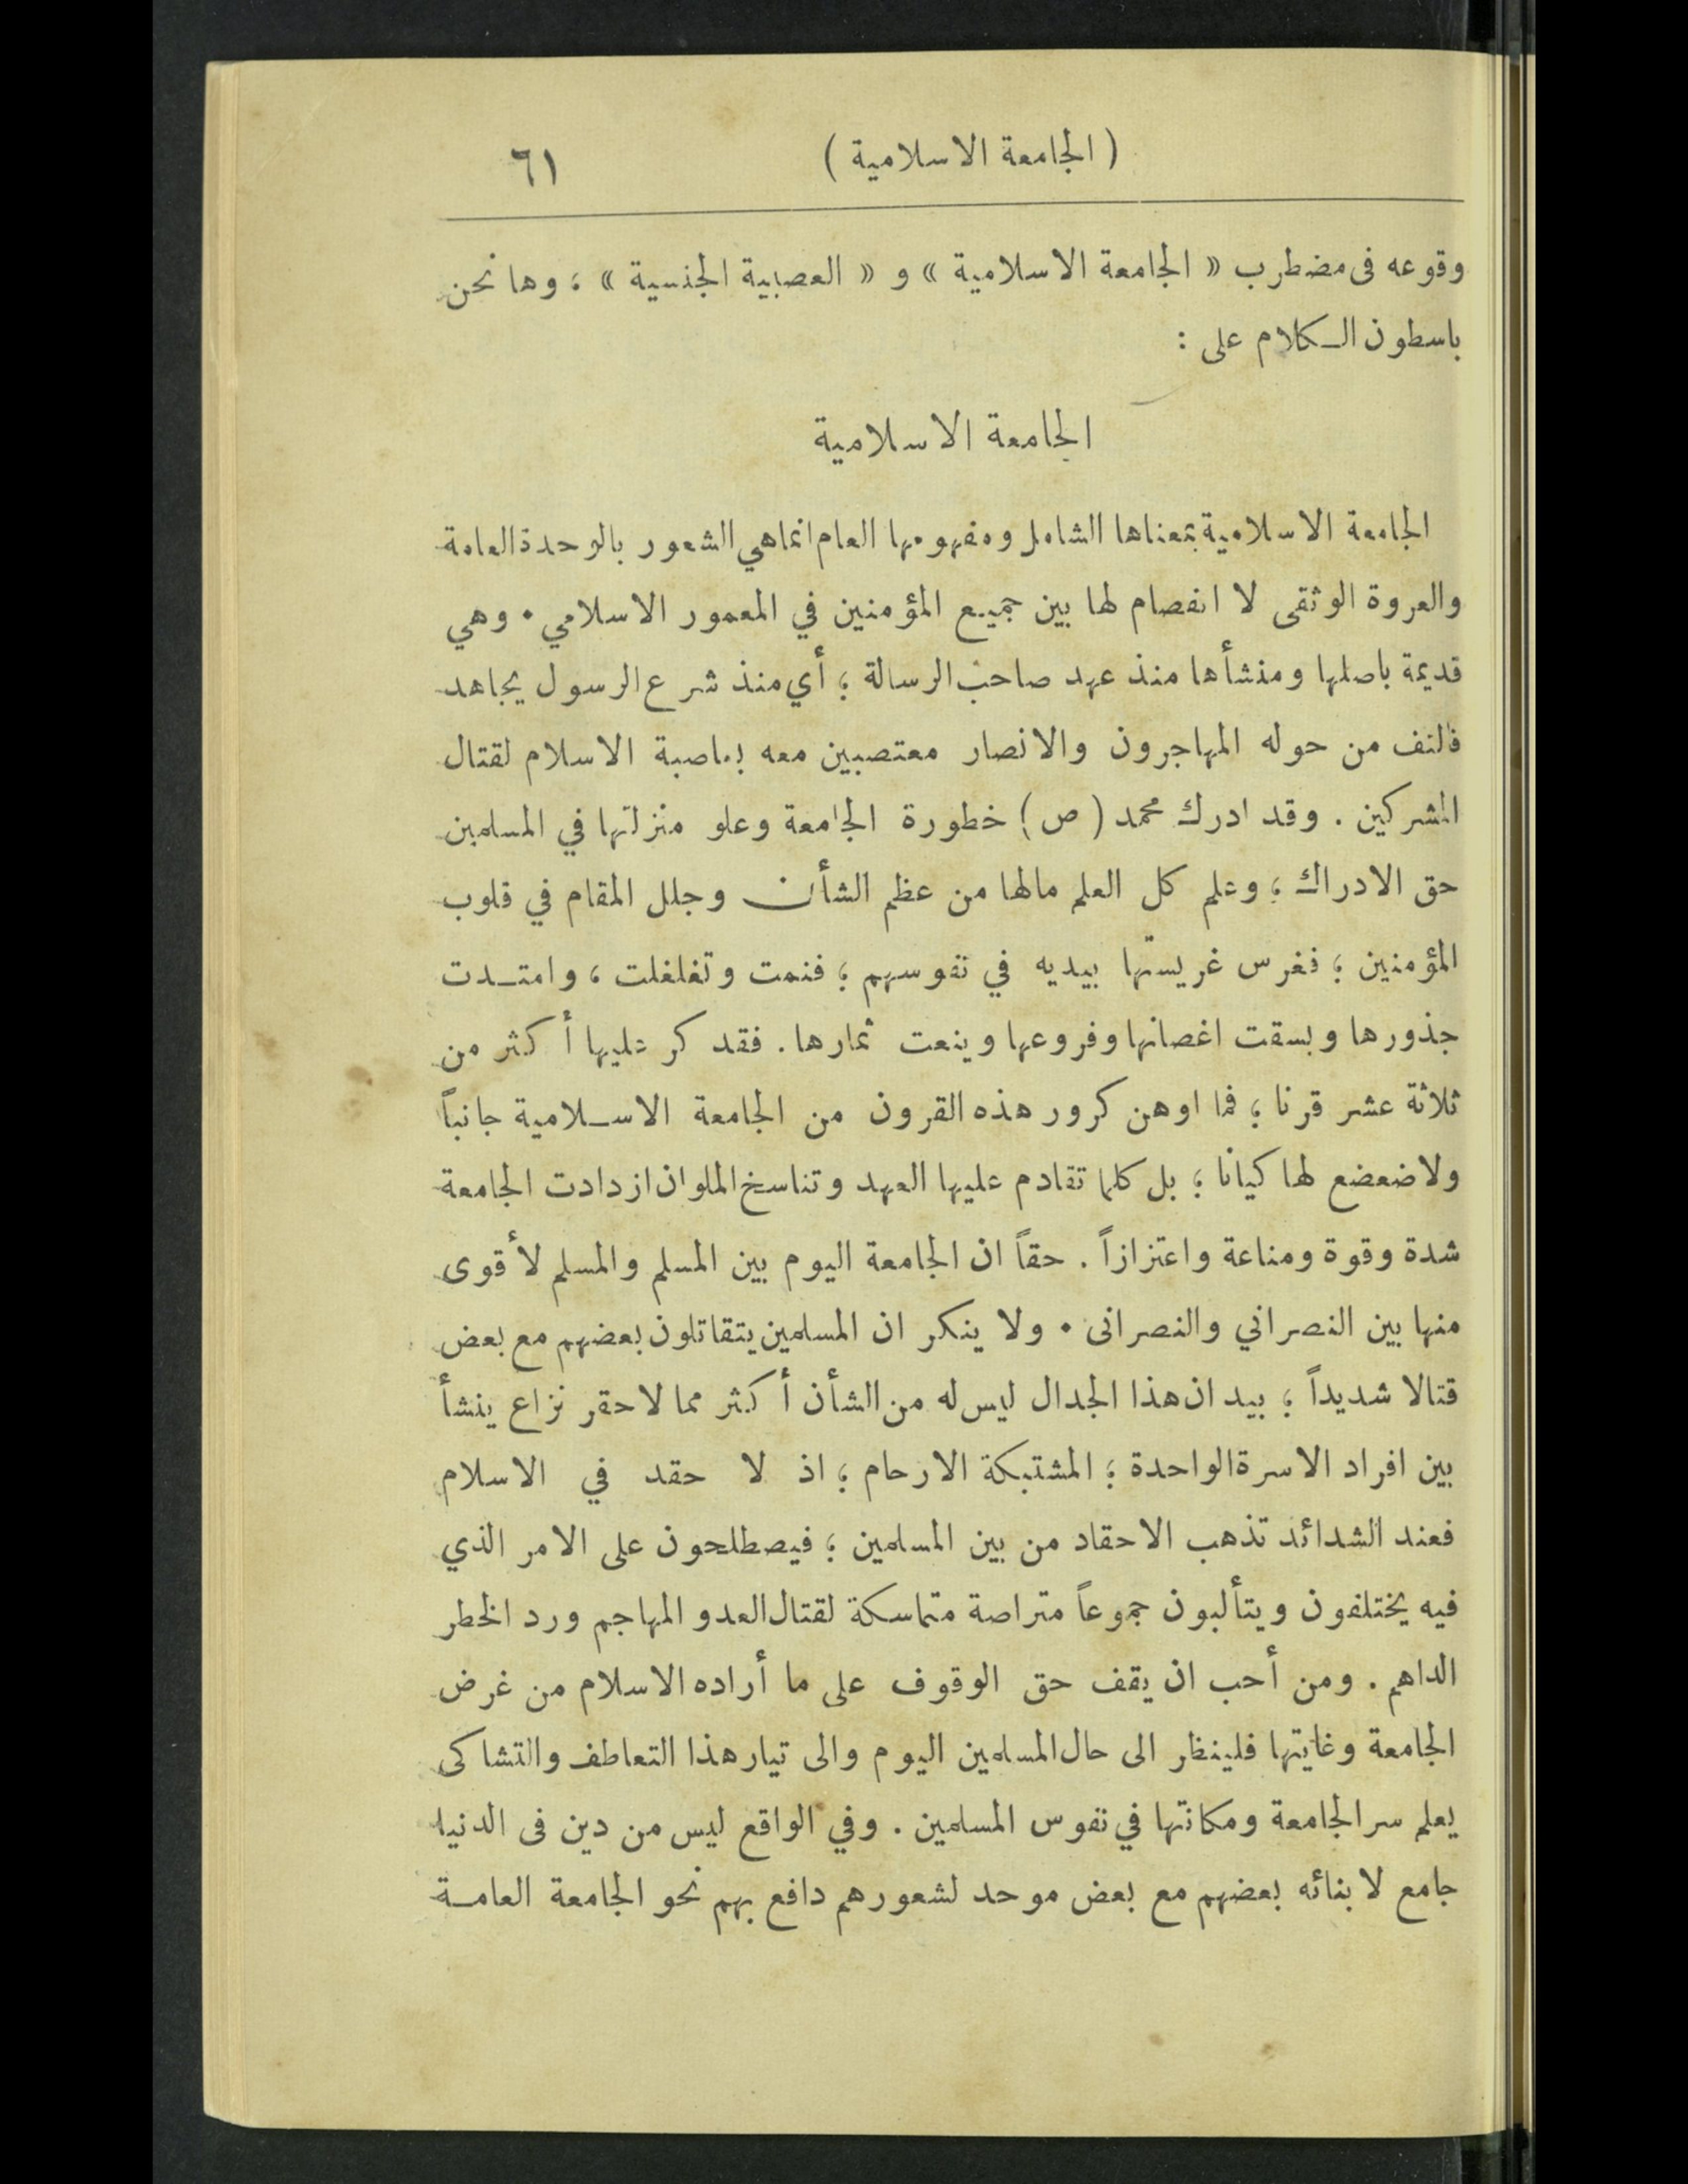 ( الجامعة الاسلامية ) ٦١
وقوعه فى مضطرب « الجامعة الاسلامية » و « العصبية الجنسية » ؛ وها نحن
باسطون الكلام على :
الجامعة الاسلامية
الجامعة الاسلامية بمعناها الشامل ومفهومها العام انما هي الشعور بالوحدة العامة
والعروة الوثقى لا انفصام لها بين جميع المؤمنين في المعمور الاسلامي . وهي
قديمة باصلها ومنشأها منذ عهد صاحب الرسالة ؛ أي منذ شرع الرسول يجاهد
فالتف من حوله المهاجرون والانصار معتصبين معه بعاصبة الاسلام لقتال
المشركين . وقد ادرك محمد ( ص ) خطورة الجامعة وعلو منزلتها في المسلمين
حق الادراك ؛ وعلم كل العلم مالها من عظم الشأن وجلل المقام في قلوب
المؤمنين ؛ فغرس غريستها بيديه في نفوسهم ؛ فنمت وتغلغلت ، وامتدت
جذورها وبسقت اغصانها وفروعها وينعت ثمارها . فقد كر عليها أكثر من
ثلاثة عشر قرنا ؛ فما اوهن كرور هذه القرون من الجامعة الاسلامية جانباً
ولا ضعضع لها كيانا ؛ بل كلما تقادم عليها العهد وتناسخ الملوان ازدادت الجامعة
شدة وقوة ومناعة واعتزازاً . حقاً ان الجامعة اليوم بين المسلم والمسلم لأقوى
منها بين النصراني والنصرانى . ولا ينكر ان المسلمين يتقاتلون بعضهم مع بعض
قتالا شديداً ؛ بيد ان هذا الجدال ليس له من الشأن أكثر مما لاحقر نزاع ينشأ
بين افراد الاسرة الواحدة ؛ المشتبكة الارحام ؛ اذ لا حقد في الاسلام
فعند الشدائد تذهب الاحقاد من بين المسلمين ؛ فيصطلحون على الامر الذي
فيه يختلفون ويتألبون جموعاً متراصة متماسكة لقتال العدو المهاجم ورد الخطر
الداهم . ومن أحب ان يقف حق الوقوف على ما أراده الاسلام من غرض
الجامعة وغايتها فلينظر الى حال المسلمين اليوم والى تيار هذا التعاطف والتشاكى
يعلم سر الجامعة ومكانتها في نفوس المسلمين . وفي الواقع ليس من دين فى الدنيا
جامع لابنائه بعضهم مع بعض موحد لشعورهم دافع بهم نحو الجامعة العامة